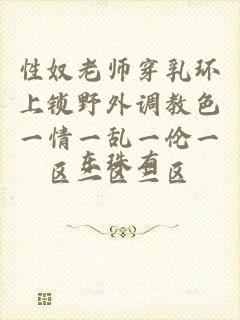 性奴老师穿乳环
上锁野外调教色
一情一乱一伦一
区一区二区
东珠有